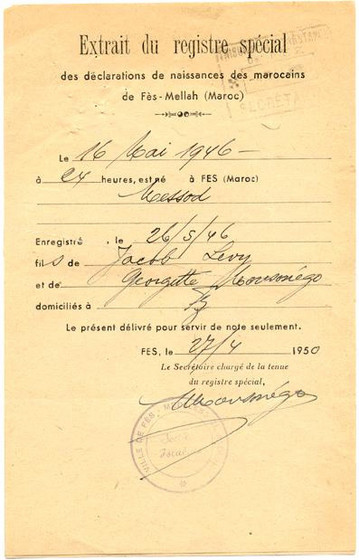 Extrait du registre spécial
des déclarations de naissances des marocains
de Fès-Mellah (Maroc)
Le 16 Mai 1946
à 24 heures, est né à FES (Maroc)
Messod
Enregistré le 26/5/46
fils de Jacob Levy
et de Georgette Monsonégo
domiciliés à
Le présent délivré pour servir de note seulement.
FES, le 27/4 1950
Le Secrétaire chargé de la tenue
du registre spécial,
Monsonégo
VILLE DE FÈS